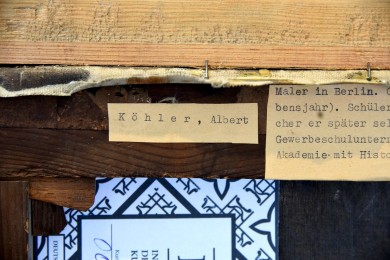 K ö h l e r , Albert
Maler in Berlin.
bensjahr). Schüler
cher er später sel
Gewerbeschuluntern
Akademie mit Histo